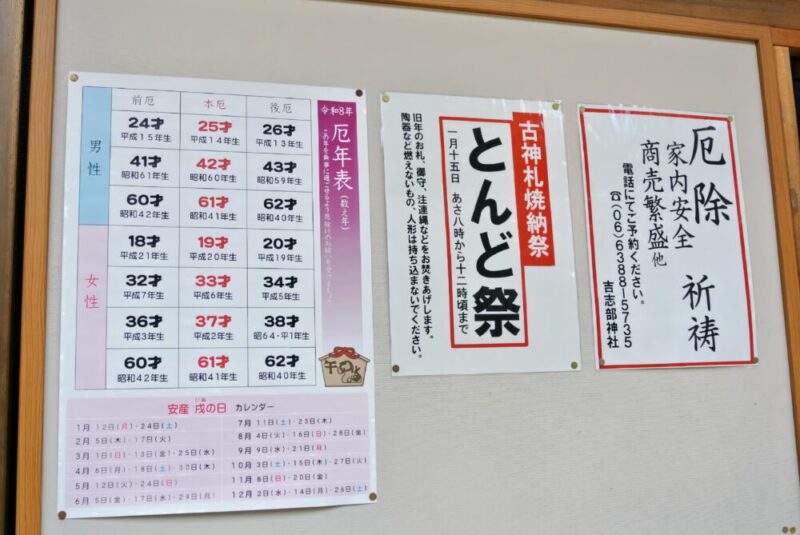 令和8年
厄年表(数え年)
この年を無事に過ごせるよう厄除けのお祓いを受けましょう
前厄 本厄 後厄
男性
24才 25才 26才
平成15年生 平成14年生 平成13年生
41才 42才 43才
昭和61年生 昭和60年生 昭和59年生
60才 61才 62才
昭和42年生 昭和41年生 昭和40年生
女性
18才 19才 20才
平成21年生 平成20年生 平成19年生
32才 33才 34才
平成7年生 平成6年生 平成5年生
36才 37才 38才
平成3年生 平成2年生 昭64-平1年生
60才 61才 62才
昭和42年生 昭和41年生 昭和40年生
午
安産 戌の日 カレンダー
いぬ
1月 12日(月)・24日(土)
2月 5日(木)・17日(火)
3月 1日(日)・13日(金)・25日(水)
4月 6日(月)・18日(土)・30日(木)
5月 12日(火)・24日(日)
6月 5日(金)・17日(水)・29日(月)
7月 11日(土)・23日(木)
8月 4日(火)・16日(日)・28日(金)
9月 9日(水)・21日(月)
10月 3日(土)・15日(木)・27日(火)
11月 8日(日)・20日(金)
12月 2日(水)・14日(月)・26日(土)
古神札焼納祭
とんど祭
一月十五日 あさ八時から十二時頃まで
旧年のお札、御守、注連縄などをお焚きあげします。
陶器など燃えないもの、人形は持ち込まないでください。
厄除 祈祷
家内安全
商売繁盛他
電話にてご予約ください。
☎(06)6388-5735
吉志部神社